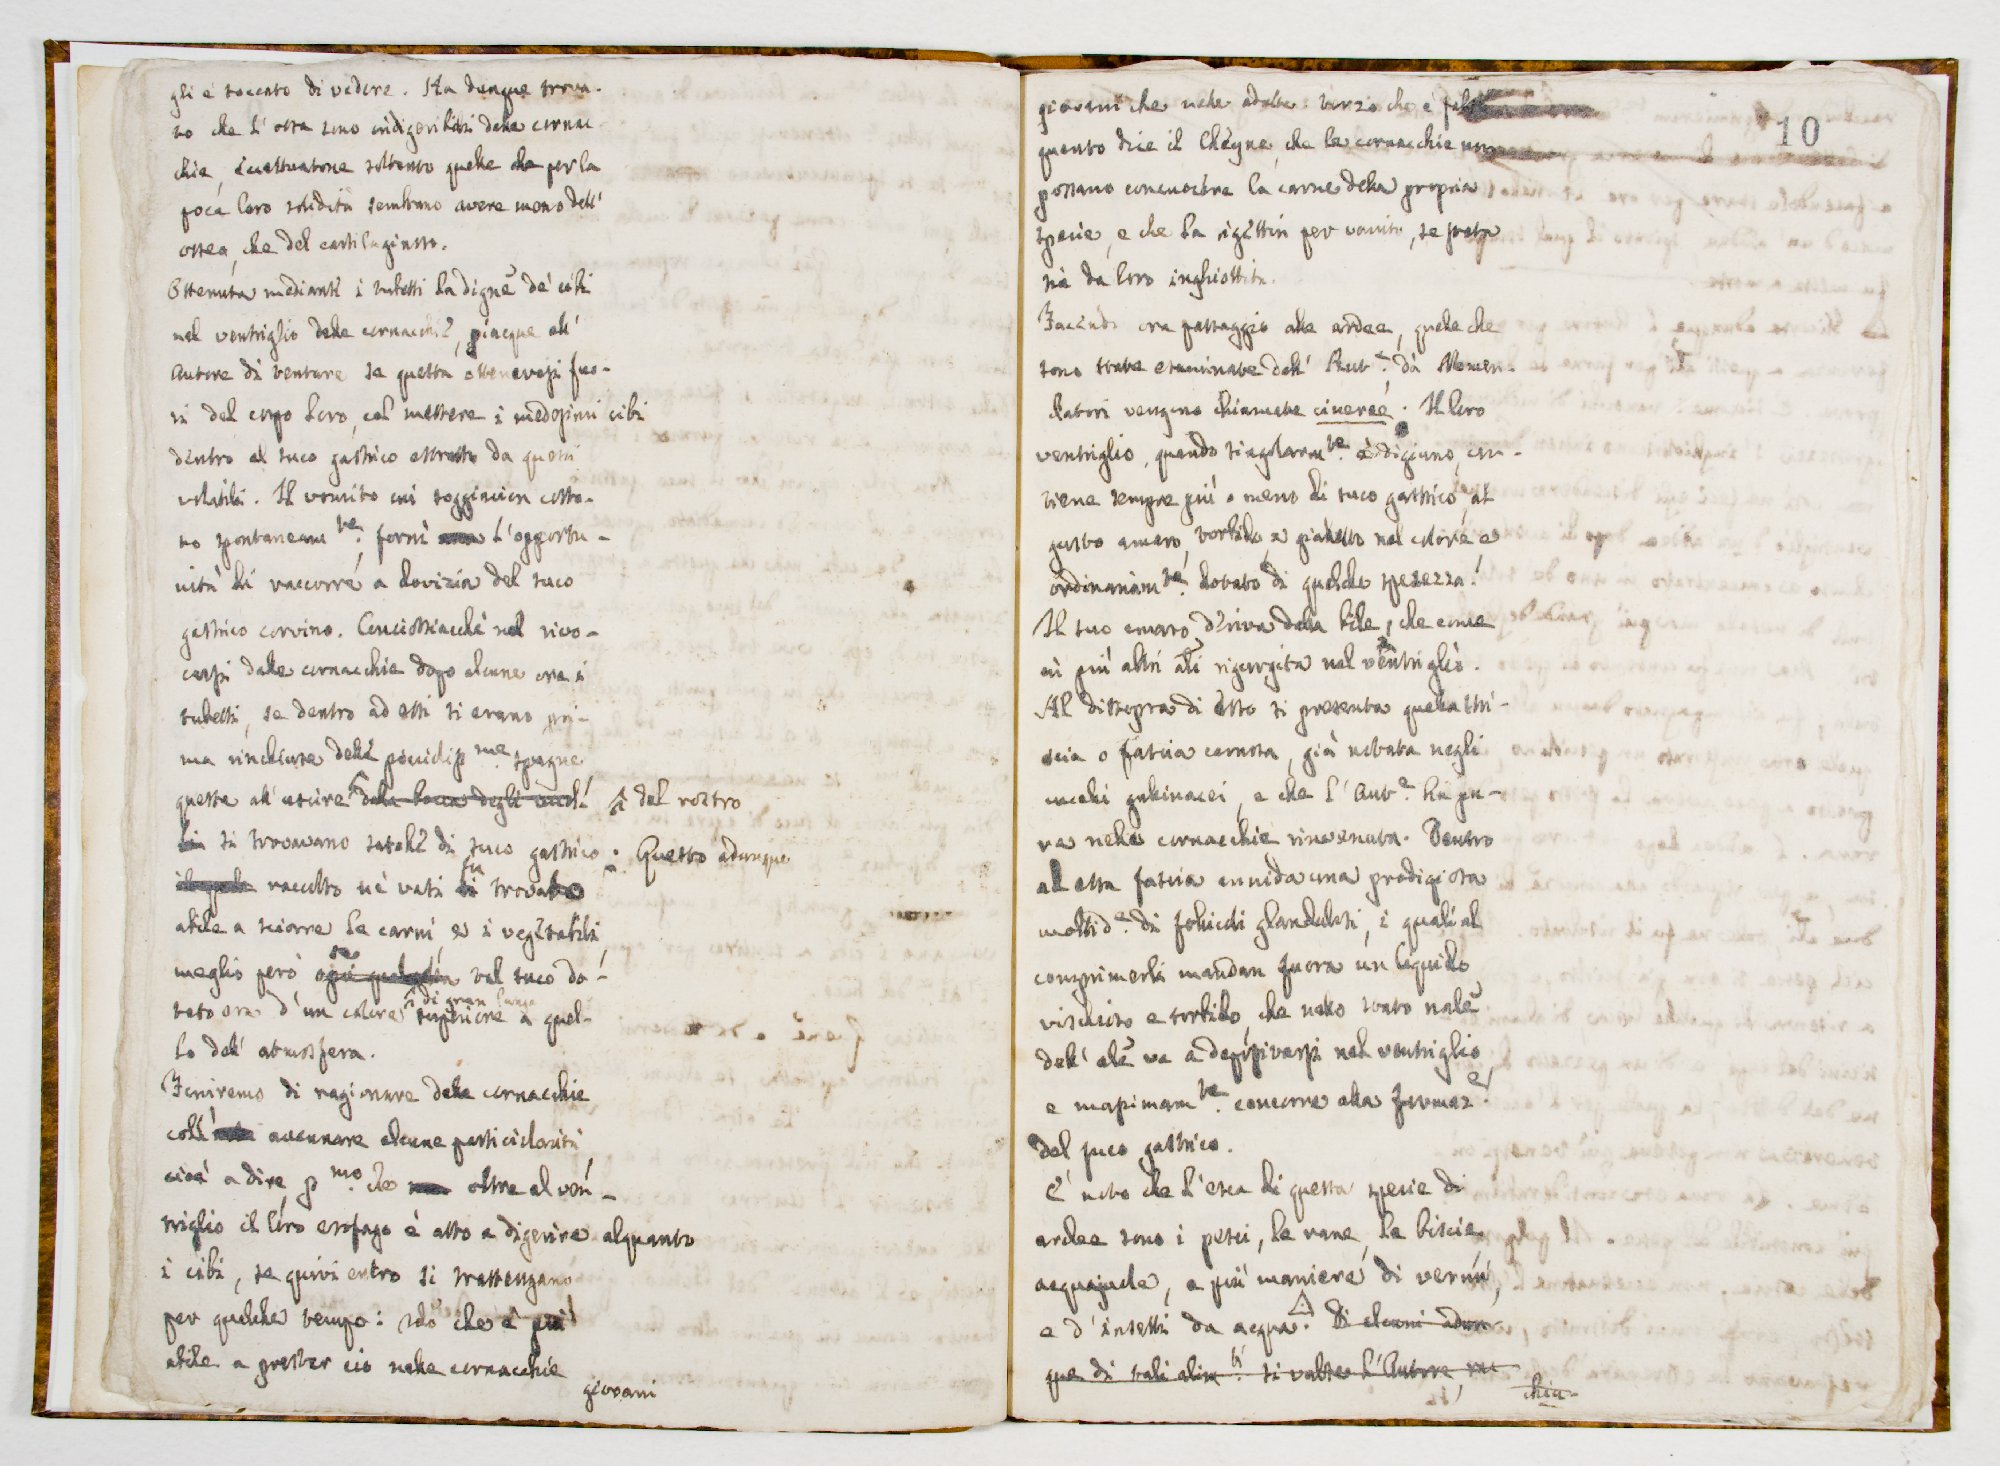 gli è toccato di vedere. Ha dunque trova-
to che l'ossa sono indigeribili dalle cornac-
chie, eccettuatone soltanto quelle che per la
poca loro solidità sembrano avere meno dell'
osseo, che del cartilaginoso.
Ottenuta mediante i tubetti la digne de' cibi
nel ventriglio delle cornacchie, piacque all'
Autore di tentare se questa ottenevasi fuo-
ri del corpo loro, col mettere i medesimi cibi
dentro al suco gastrico estratto da questi
volatili. Il vomito cui soggiacion costo-
ro spontaneam.te fornì l'opportu-
nità di raccorre a dovizia del suco
gastrico corvino. Conciossiacchè nel rivo-
carsi dalle cornacchie dopo alcune ore i
tubetti, se dentro ad essi si erano pri-
ma rinchiuse delle picciolis.me spugne
queste all'uscire dalla bocca degli uccel- del rostro
li si trovavano satolle di suco gastrico: Questo adunque
raccolto ne' vasi fu trovato
abile a sciorre le carni, e i vegetabili,
meglio però se tal suco do-
tato era d'un calore di gran lunga superiore a quel-
lo dell'atmosfera.
Finiremo di ragionare delle cornacchie
coll' accennare alcune particolarità,
cioè a dire p.mo che oltre al ven-
triglio il loro esofago è atto a digerire alquanto
i cibi, se quivi entro si trattengano
per qualche tempo: 2do che è più
abile a prestar ciò nelle cornacchie
giovani
10
giovani che nelle adulte: terzo che è falso
quanto dice il Cheyne, che le cornacchie non
possano concuocere la carne della propria
specie, e che la rigettin per vomito, se
sia da loro inghiottita.
Facendo ora passaggio alle ardee, quelle che
sono state esaminate dall' Aut.e da' Nomen-
clatori vengono chiamate cineree. Il loro
ventriglio, quando singolarm.te è digiuno, con-
tiene sempre più o meno di suco gastrico, al
gusto amaro, torbido, e gialletto nel colore e
ordinariam.te dotato di qualche spezezza.
Il suo amaro deriva dalla bile, che come
in più altri ali rigurgita nel ventriglio.
Al dissopra di esso si presenta quella stri-
scia o fascia carnosa, già notata negli
uccelli gallinacei, e che l'Aut.e ha pu-
re nelle cornacchie rinvenuta. Dentro
ad essa fascia annida una prodigiosa
moltid.e di follicoli glandulosi, i quali al
comprimerli mandan fuora un liquido
vischioso e torbido, che nello stato nale
dell'ale va a depositarsi nel ventriglio
e massimam.te concorre alla formaz.e
del suco gastrico.
È noto che l'esca di questa specie di
ardee sono i pesci, le rane, le biscie
acquajuole, e più maniere di vermi,
e d'insetti da acqua. Di alcuni adun-
que di tali alim.ti si valse l'Autore, rac-
chiu-